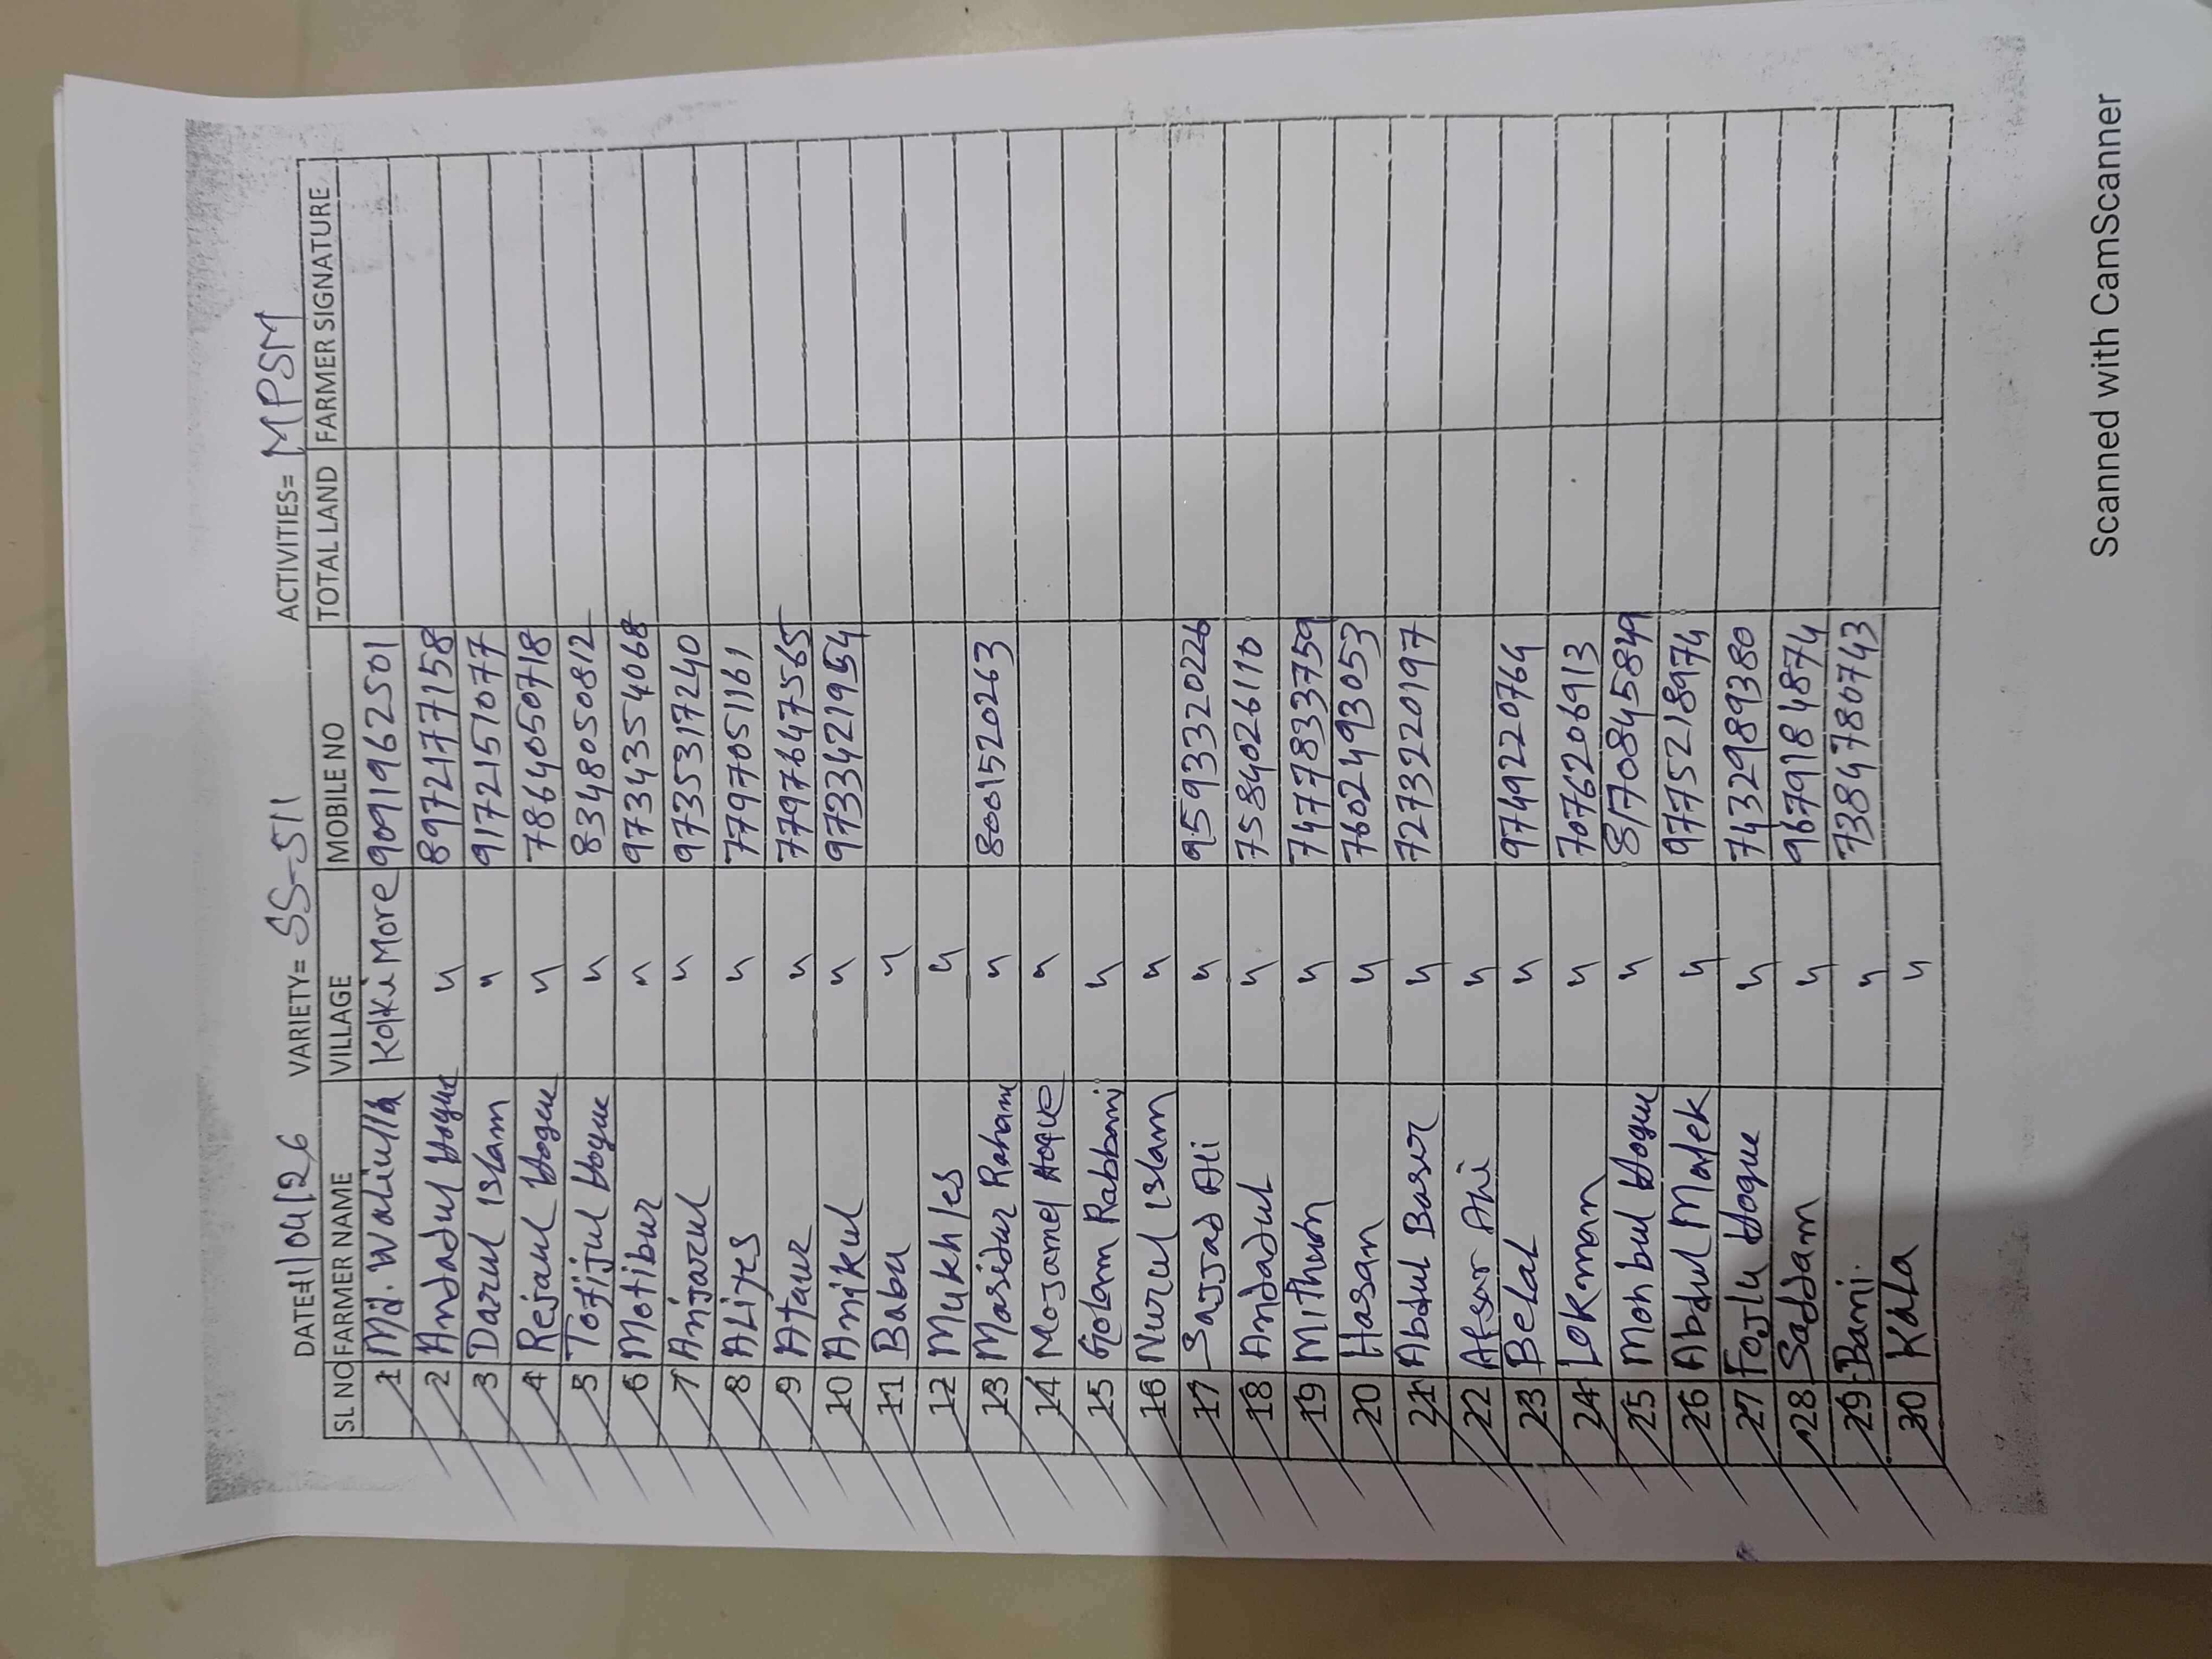 DATE=1/04/26 VARIETY= SS-511 ACTIVITIES= MPSM
SL NO FARMER NAME VILLAGE MOBILE NO TOTAL LAND FARMER SIGNATURE
1 Md. Waliulla Kolki More 9091962501
2 Amdadul Hoque " 8972177158
3 Darul Islam " 9172151077
4 Rejaul Hoque " 7864050718
5 Tofijul Hoque " 8348050812
6 Motibur " 9734354068
7 Anjarul " 9735317240
8 ALiyes " 7797051161
9 Ataur " 7797647565
10 Anikul " 9733421954
11 Babu "
12 Mukhles "
13 Masidur Raham " 8001520263
14 Mojamel Hoque "
15 Golam Rabbani "
16 Nurul Islam "
17 Sajjad Ali " 9593320226
18 Amdadul " 7584026110
19 Mithun " 7477833759
20 Hasan " 7602493053
21 Abdul Baser " 7273220197
22 Afsar Ali "
23 Belal " 9749220764
24 Lokman " 7076206913
25 Monbul Hoque " 8170845849
26 Abdul Malek " 9775218974
27 Fojlu Hoque " 7432989380
28 Saddam " 9679184874
29 Bami. " 7384780743
30 Kala "
Scanned with CamScanner